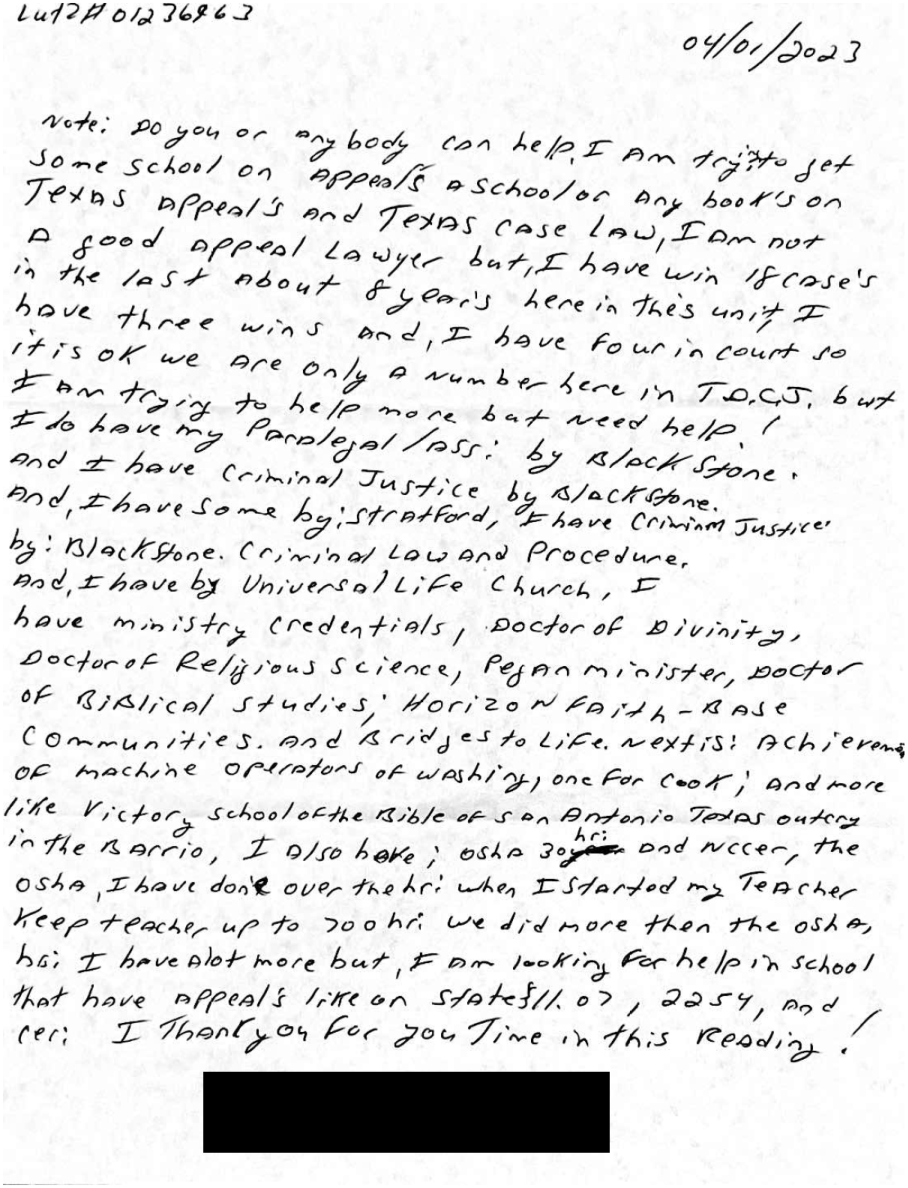 Lutz# 01236963
04/01/2023
Note: Do you or Anybody can help. I Am trying to get
some school on Appeal's a school or Any book's on
Texas Appeal's And Texas Case Law, I Am not
A good Appeal Lawyer but, I have win 18 case's
in the last About 8 year's here in the's unit, I
have three wins And, I have four in court so
it is ok we Are only A Number here in T.D.C.J. but
I Am trying to help more but need help!
I do have my Paralegal/Ass: by Black Stone.
And I have Criminal Justice by Blackstone.
And, I have some by; Stratford, I have Criminal Justice
by: Blackstone. Criminal Law And Procedure.
And, I have by Universal Life Church, I
have ministry Credentials, Doctor of Divinity,
Doctor of Religious Science, Pegan minister, Doctor
of Biblical Studies; Horizon Faith-Base
Communities. And Bridges to Life. Next is: Achievem
of machine operators of washing, one for cook; And more
like Victory School of the Bible of San Antonio Texas outcry
in the Barrio, I Also have; osha 30 hr: And Nccer, the
osha, I have done over the hr: when I started my Teacher
Keep teacher up to 700 hr: we did more then the osha,
hr: I have Alot more but, I Am looking For help in school
that have Appeal's like on state §11.07, 2254, And
cer: I Thank you For you Time in this Reading!